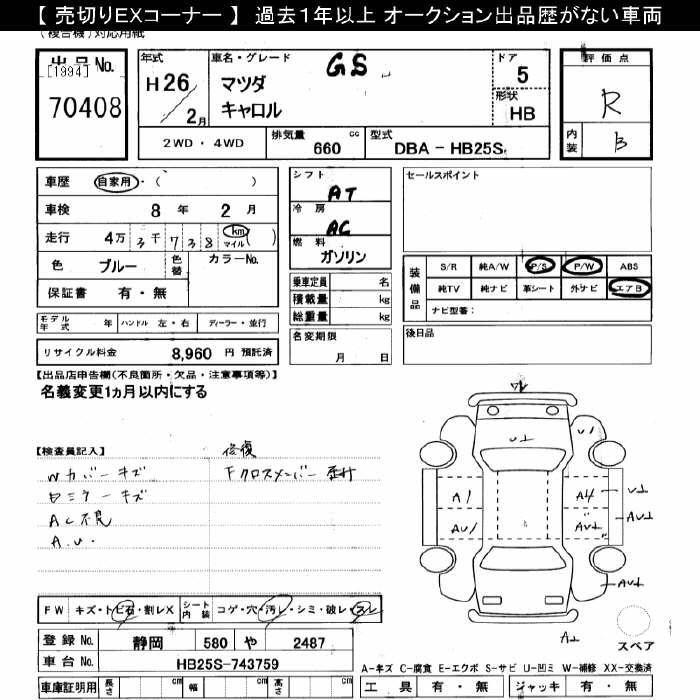 【 売切りEXコーナー 】 過去１年以上 オークション出品歴がない車両
(複合機)対応用紙
出品No.
[1994]
70408
年式
H26
2月
車名・グレード
GS
マツダ
キャロル
ドア
5
形状
HB
評価点
R
内装
B
2WD・4WD
排気量
660
cc
型式
DBA－HB25S
車歴
自家用・( )
車検
8年 2月
走行
4万 3千 7 3 8
km
マイル
色
ブルー
色替
カラーNo.
保証書 有・無
シフト
AT
冷房
AC
燃料
ガソリン
乗車定員 名
積載量 kg
総重量 kg
名変期限
月 日
セールスポイント
装備品
S/R 純A/W P/S P/W ABS
純TV 純ナビ 革シート 外ナビ エアB
ナビ型番：
後日品
モデル年式 年 ハンドル 左・右 ディーラー・並行
リサイクル料金 8,960 円 預託済
【出品店申告欄(不良箇所・欠品・注意事項等)】
名義変更1ヵ月以内にする
【検査員記入】
修復
Wカバーキズ
Fクロスメンバー
ロミラーキズ
AC不良
A.U.
U
U1
A1
A4
AU1
A
スペア
FW キズ・トビ石・割レX シート内装 コゲ・穴・汚レ・シミ・破レ・スレ
登録No. 静岡 580 や 2487
車台No. HB25S-743759
車庫証明用 長さ cm 幅 cm 高さ cm
A－キズ C－腐食 E－エクボ S－サビ U－凹ミ W－補修 XX－交換済
工具 有・無 ジャッキ 有・無